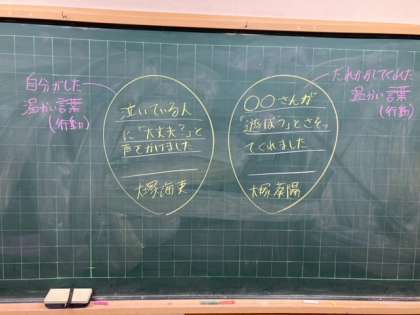 自分がした
温かい言葉
(行動)
泣いている人
に「大丈夫?」と
声をかけました
大塚
〇〇さんが
「遊ぼう」とさそっ
てくれました
大塚
だれかがしてくれた
温かい言葉
(行動)